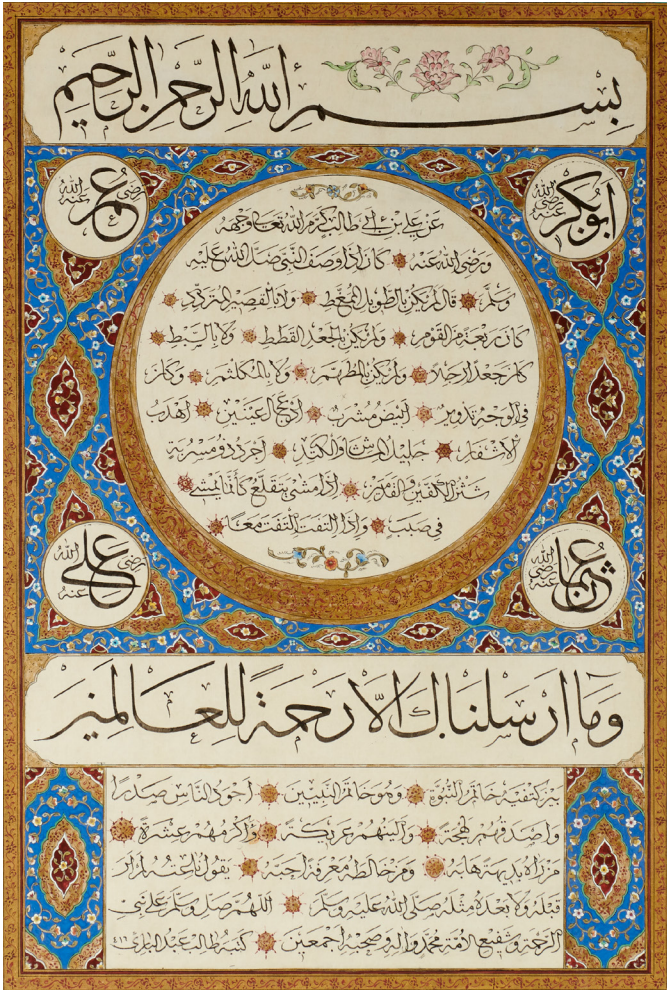 بسم الله الرحمن الرحيم
ابوبكر رضي الله عنه
عمر رضي الله عنه
عن علي بن ابي طالب كرم الله تعالى وجهه
ورضي الله عنه كان اذا وصف النبي صلى الله عليه
وسلم قال لم يكن بالطويل الممغط ولا بالقصير المتردد
كان ربعة من القوم ولم يكن بالجعد القطط ولا بالسبط
كان جعدا رجلا ولم يكن بالمطهم ولا بالمكلثم وكان
في الوجه تدوير ابيض مشرب ادعج العينين اهدب
الاشفار جليل المشاش والكتد اجرد ذو مسربة
شثن الكفين والقدمين اذا مشى يتقلع كأنما يمشي
في صبب واذا التفت التفت معا
عثمان رضي الله عنه
علي رضي الله عنه
وما ارسلناك الا رحمة للعالمين
بين كتفيه خاتم النبوة وهو خاتم النبيين اجود الناس صدرا
واصدقهم لهجة والينهم عريكة واكرمهم عشرة
من رآه بديهة هابه ومن خالطه معرفة احبه يقول ناعته لم ار
قبله ولا بعده مثله صلى الله عليه وسلم اللهم صل وسلم على نبي
الرحمة وشفيع الامة محمد واله وصحبه اجمعين كتبه طالب عبد الباري